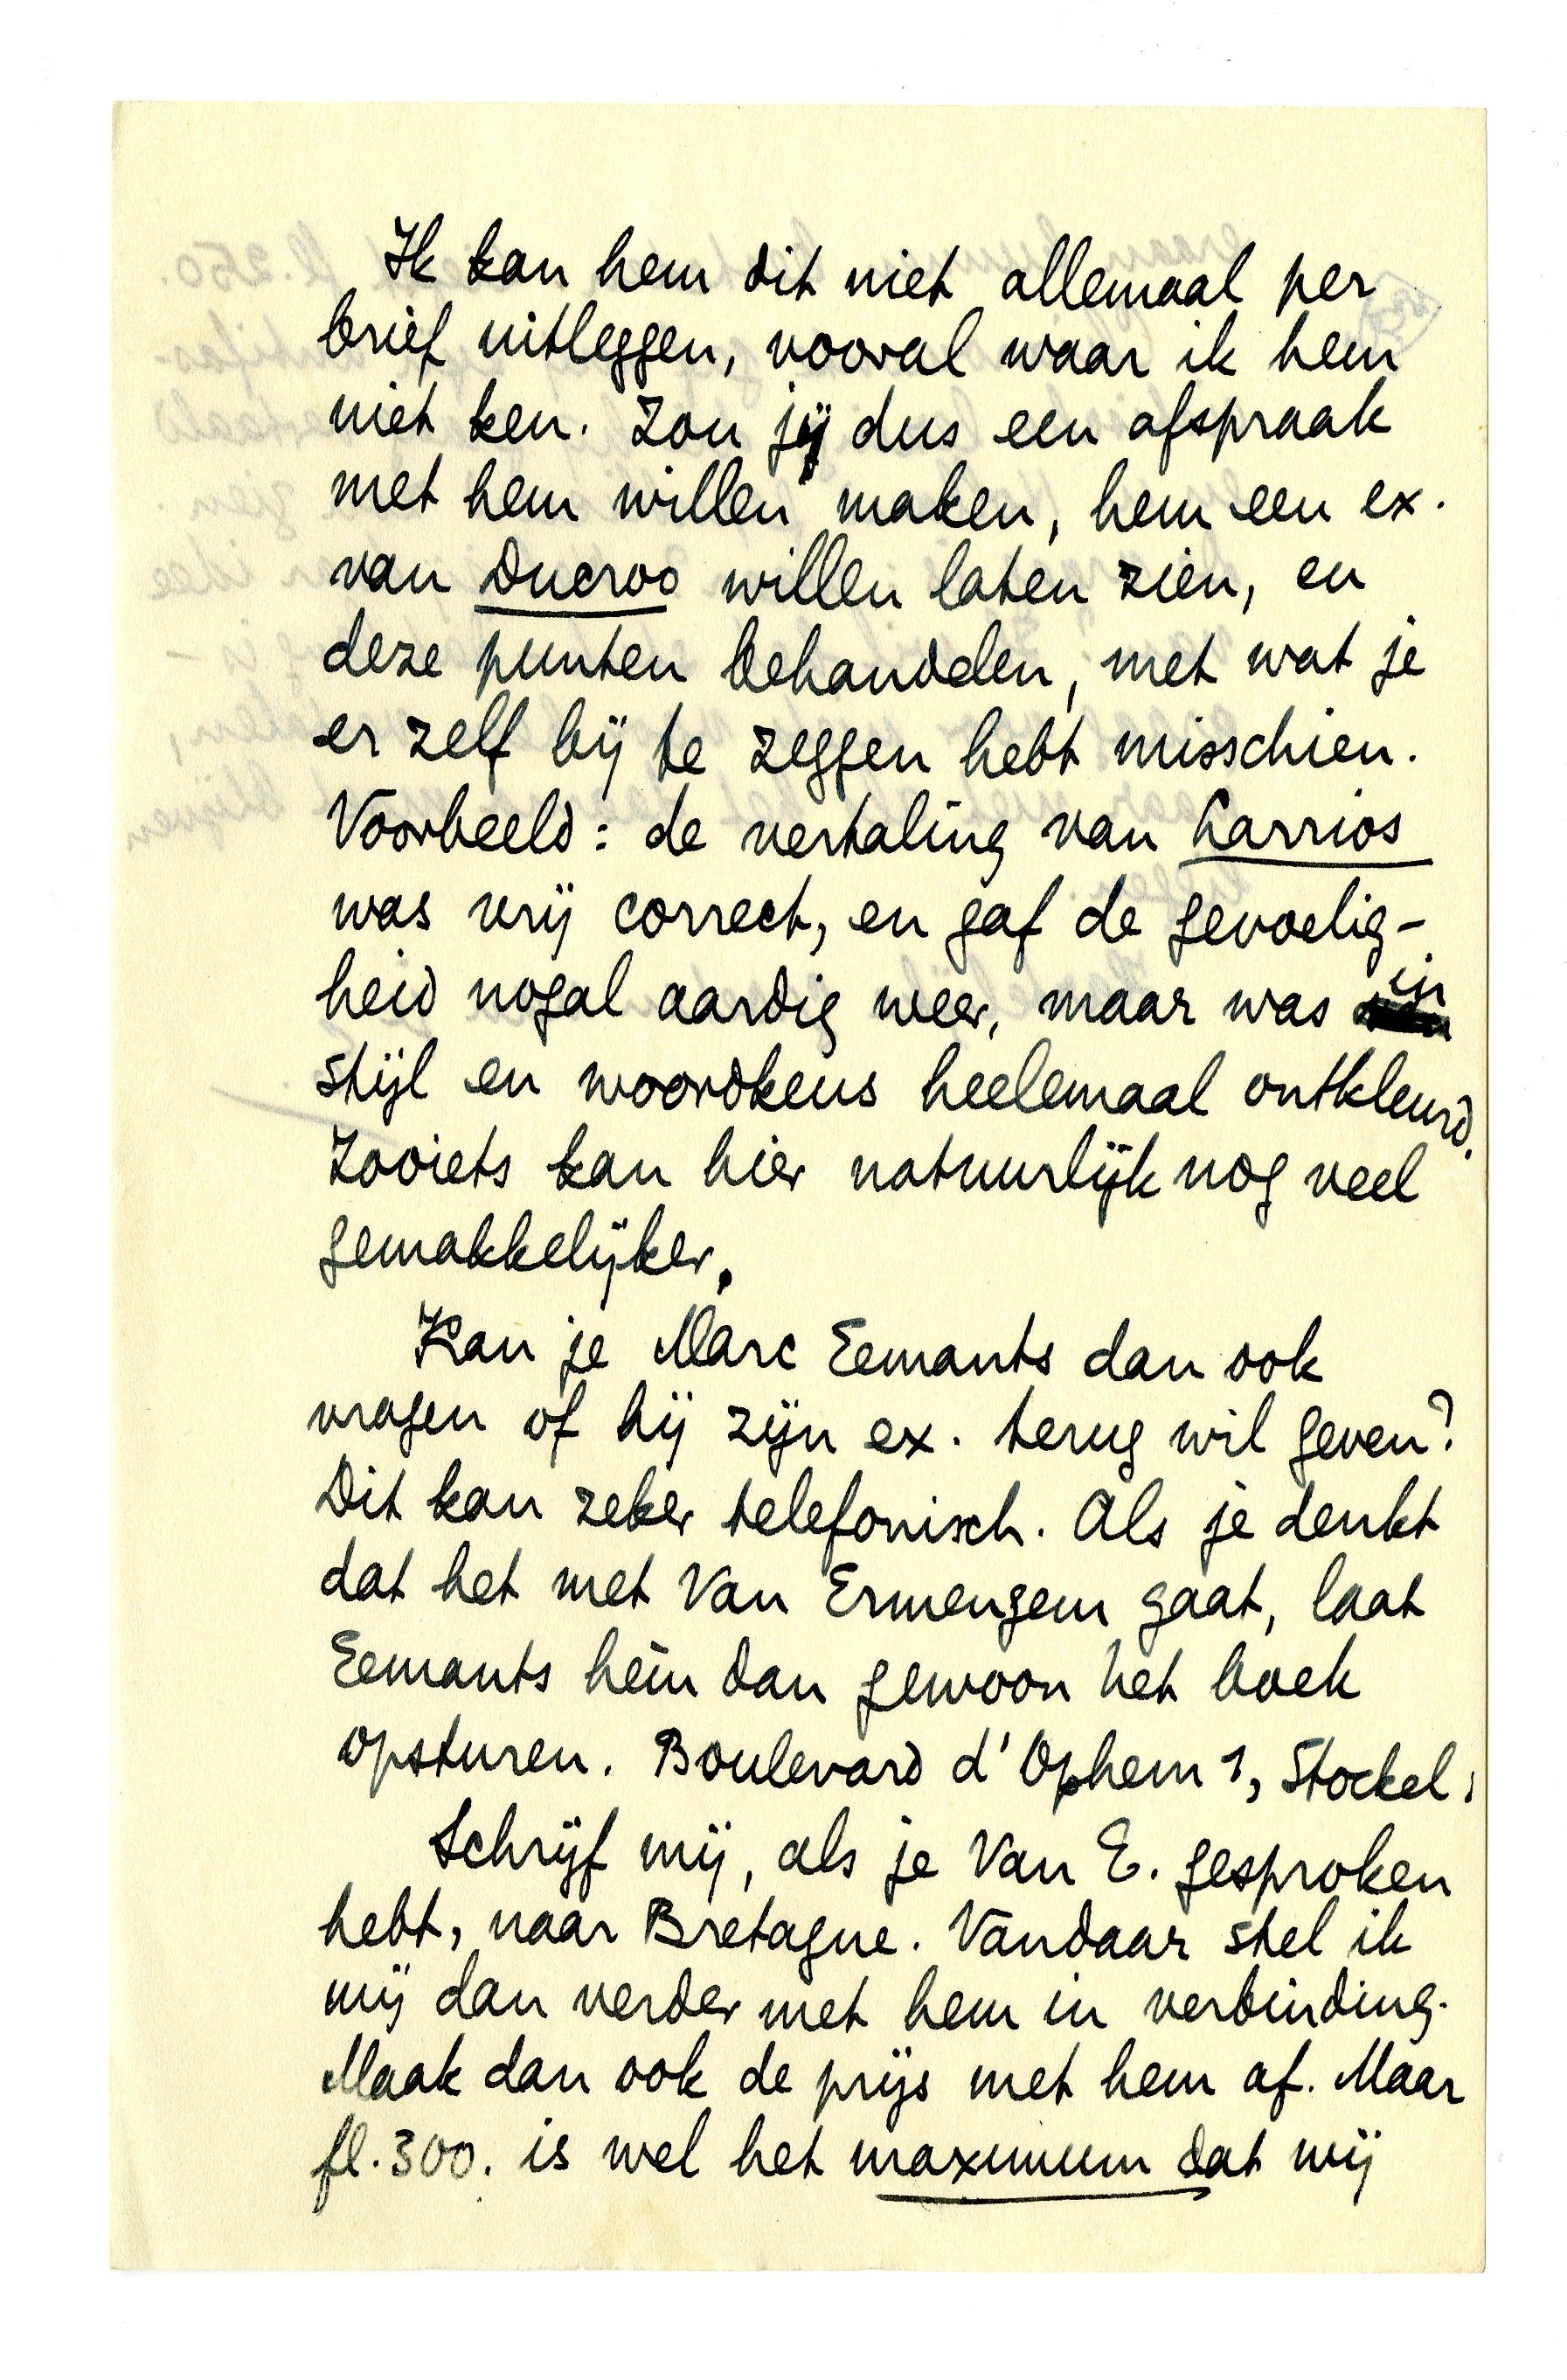 Ik kan hem dit niet allemaal per
brief uitleggen, vooral waar ik hem
niet ken. Zou jij dus een afspraak
met hem willen maken, hem een ex.
van Ducroo willen laten zien, en
deze punten behandelen, met wat je
er zelf bij te zeggen hebt misschien.
Voorbeeld: de vertaling van Larrios
was vrij correct, en gaf de gevoelig-
heid nogal aardig weer, maar was in
stijl en woordkeus heelemaal ontkleurd.
Zooiets kan hier natuurlijk nog veel
gemakkelijker.
Kan je Marc Eemants dan ook
vragen of hij zijn ex. terug wil geven?
Dit kan zeker telefonisch. Als je denkt
dat het met Van Ermengem gaat, laat
Eemants hèm dan gewoon het boek
opsturen. Boulevard d'Ophem 1, Stockel.
Schrijf mij, als je Van E. gesproken
hebt, naar Bretagne. Vandaar stel ik
mij dan verder met hem in verbinding.
Maak dan ook de prijs met hem af. Maar
fl. 300. is wel het maximum dat wij